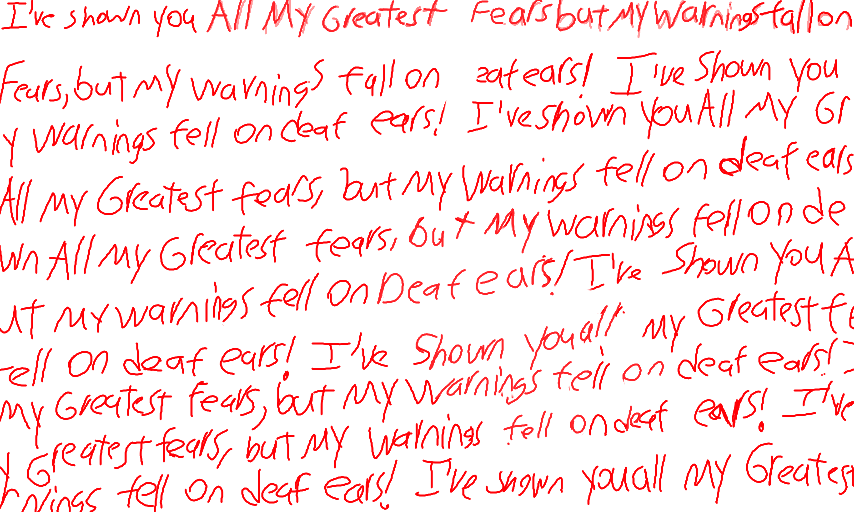 I've shown you All My Greatest Fears but My Warnings fall on
Fears, but my warnings fall on eat ears! I've Shown you
y Warnings fell on deaf ears! I've shown You All My Gr
All my Greatest fears, but My Warnings fell on deaf ears
wn All My Greatest fears, but My warnings fell on de
ut my warnings fell On Deaf ears! I've Shown You A
fell on deaf ears! I've Shown you all my Greatest fe
My Greatest Fears, but My Warnings fell on deaf ears! I
y Greatest fears, but my warnings fell on deaf ears! I've
rnings fell on deaf ears! I've shown you all my Greatest